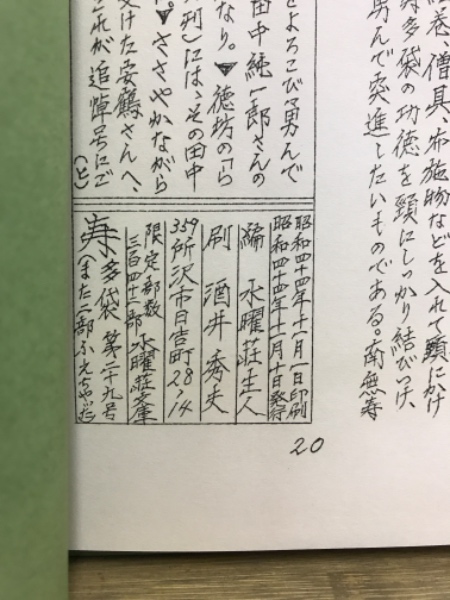 経巻、僧具、布施物などを入れて頸にかけ
寿多袋の功徳を頸にしっかり結びつけ、
勇んで突進したいものである。南無寿
をよろこび勇んで
田中純一郎さんの
なり。▼徳坊の「ら
列）には、その田中
た。▼ささやかながら
受けた安鶴さんへ、
これが追悼号にご
（と）
昭和四十四年十一月一日印刷
昭和四十四年十一月十日発行
編 水曜荘主人
刷 酒井秀夫
359所沢市日吉町28-14
限定部数
三百四十二部 水曜荘文庫
寿多袋 第二十九号
（また二部ふえちゃった）
20